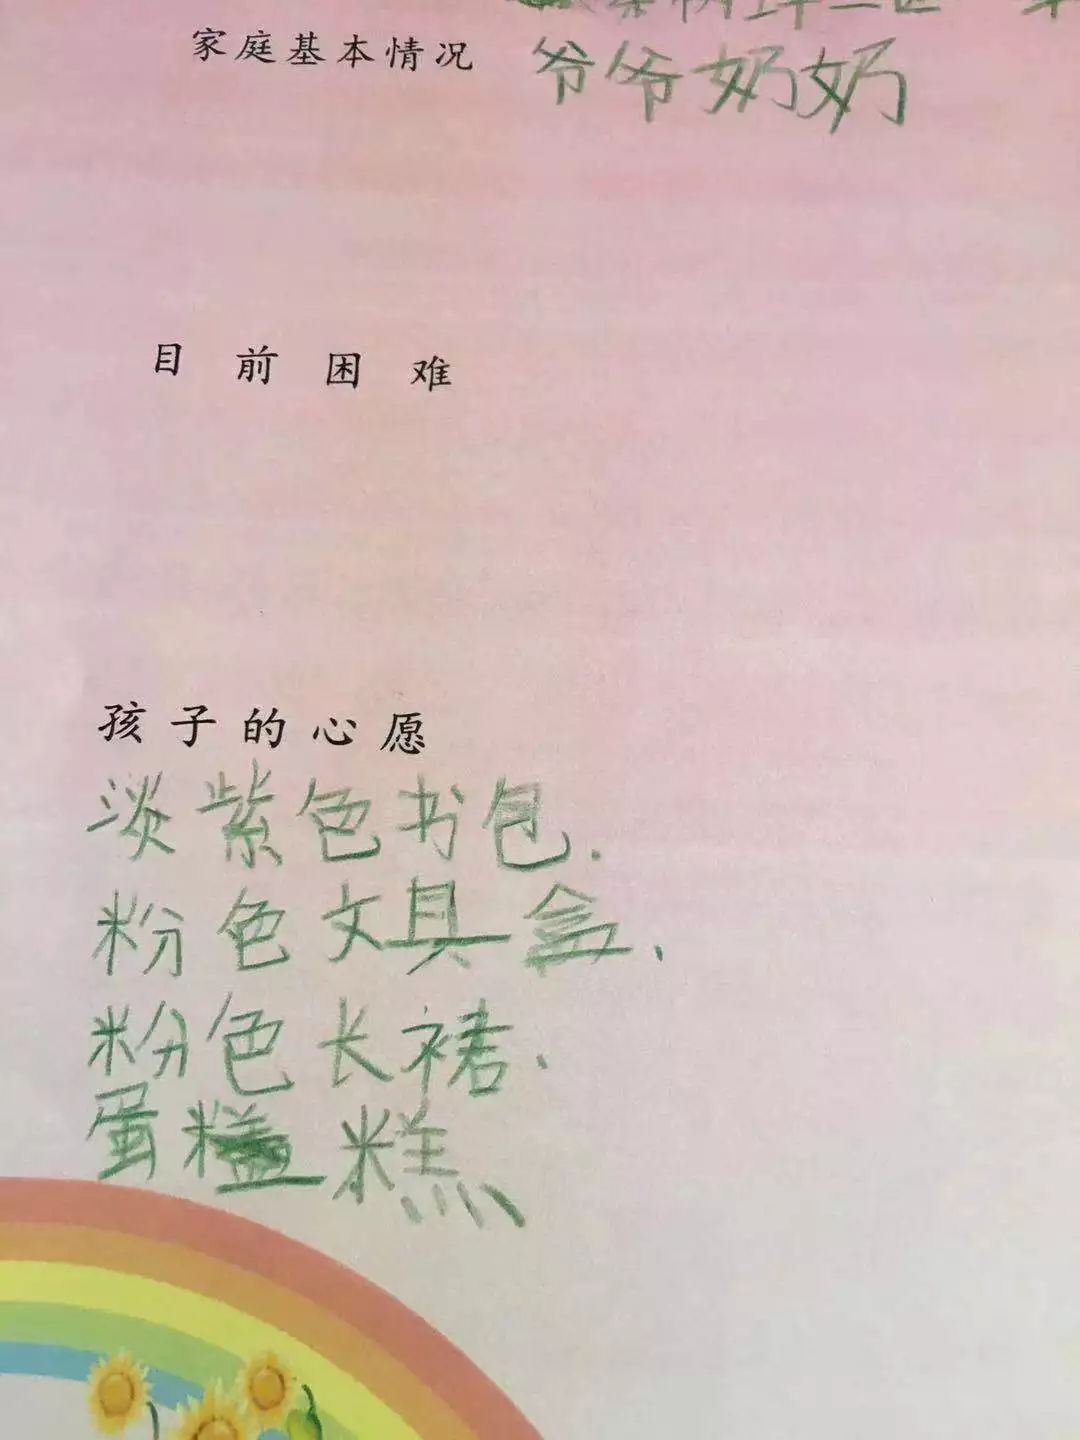 家庭基本情况
爷爷奶奶
目前困难
孩子的心愿
淡紫色书包.
粉色文具盒.
粉色长裙.
蛋糕糕